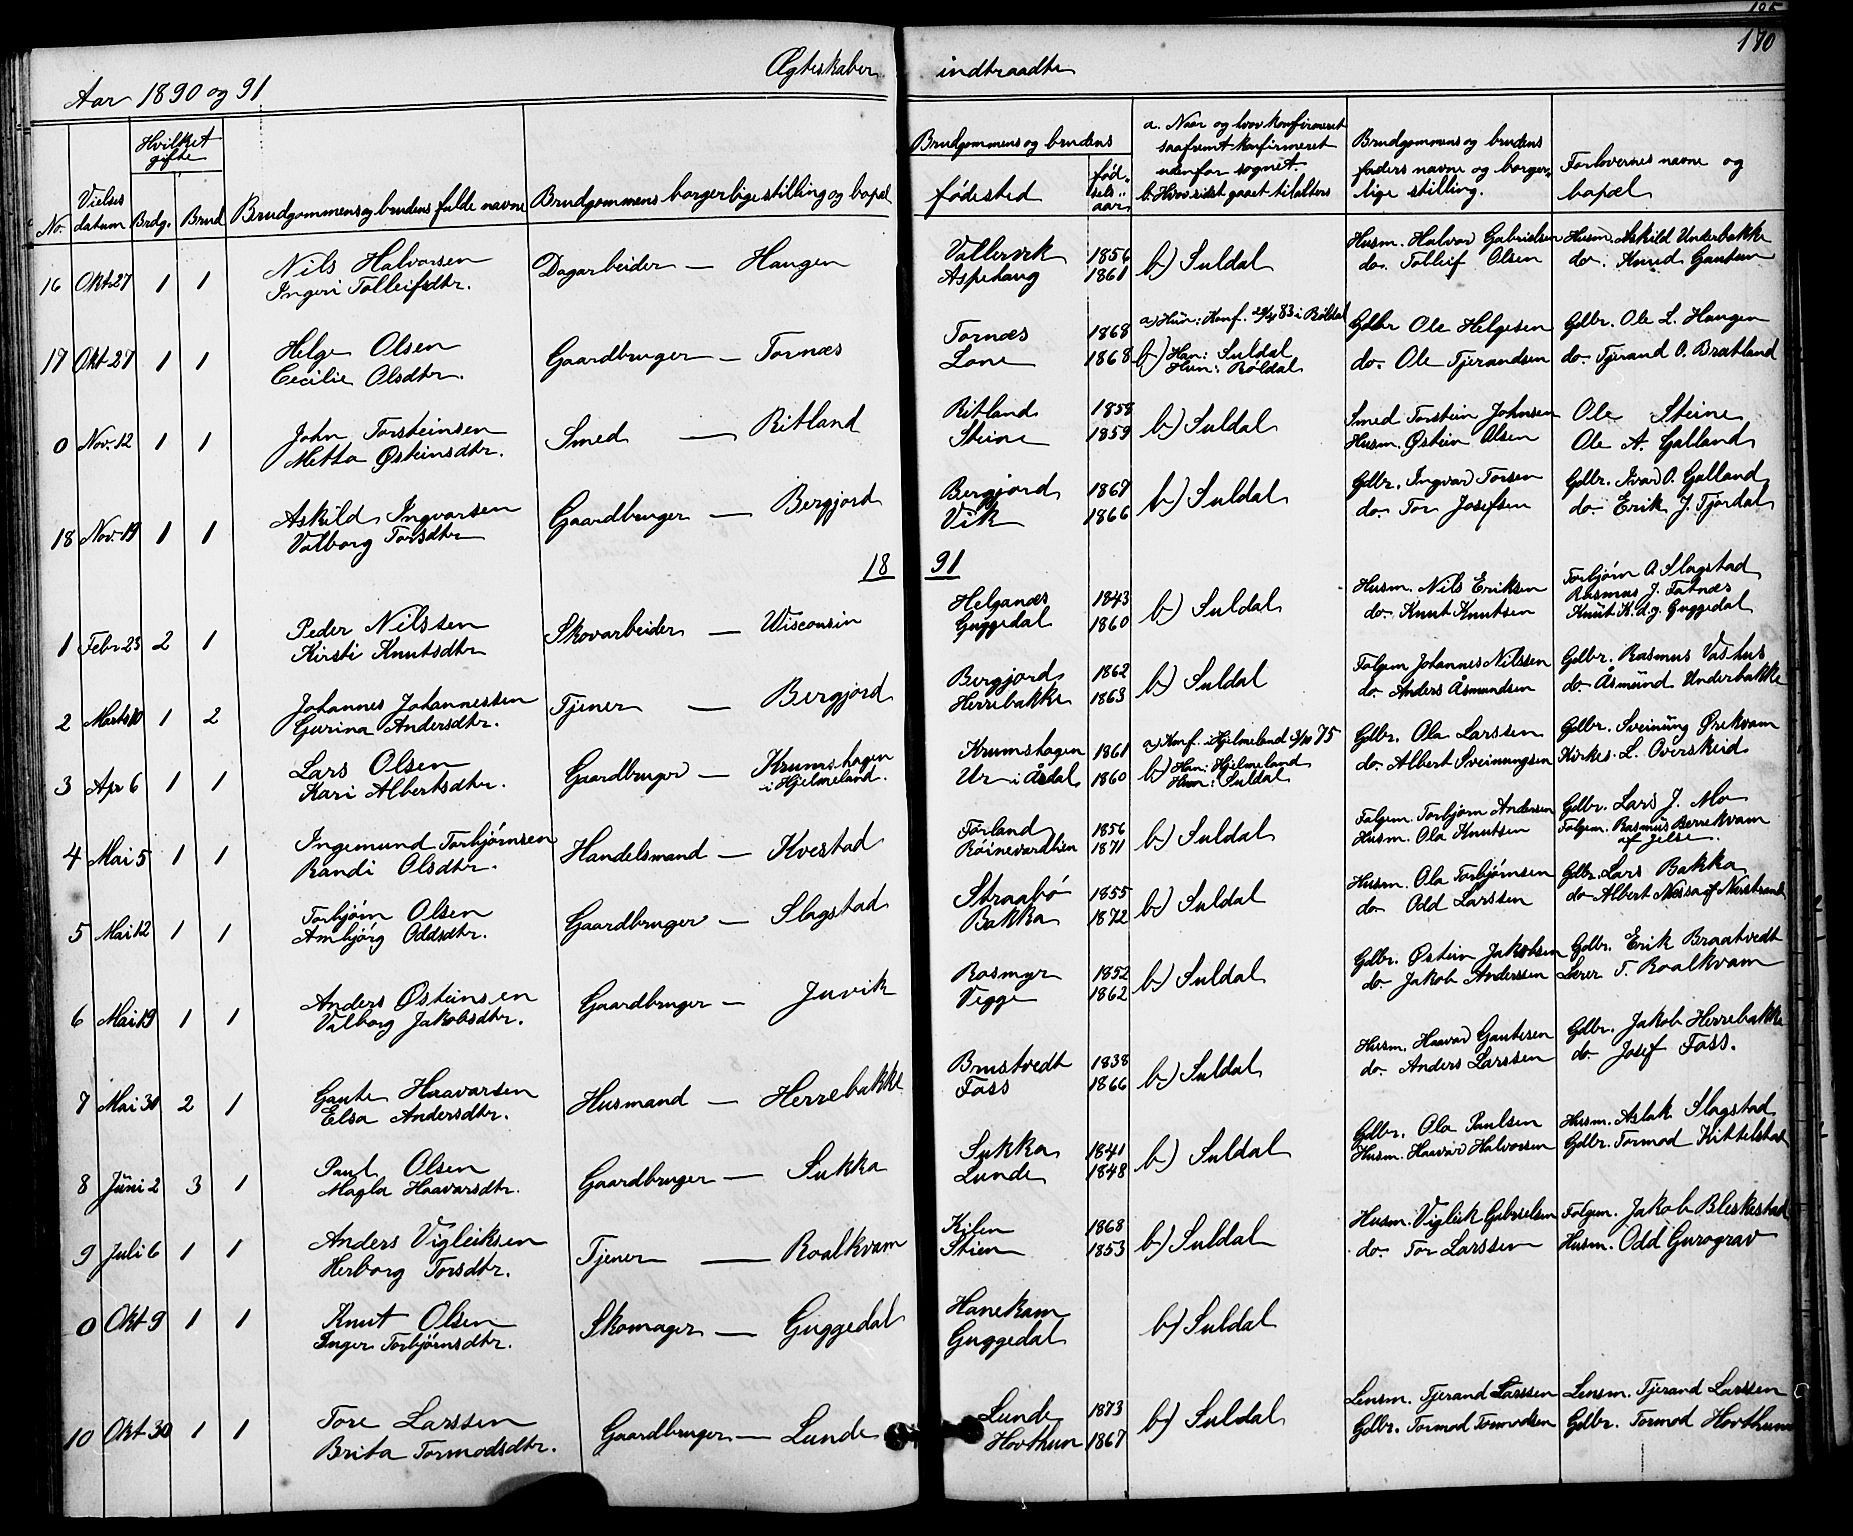 190
Ægteskaber indtraadte
Aar 1890 og 91
No. Vielses datum Hvilket gifte Brdg. Brud Brudgommens og brudens fulde navne Brudgommens borgerlige stilling og bopæl Brudgommens og brudens fødested fødselsaar a. Naar og hvor konfirmeret saafremt konfirmeret udenfor sognet. b. Hvor sidst gaaet til alters Brudgommens og brudens faders navne og borgerlige stilling. Forlovernes navne og bopæl
16 Okt 27 1 1 Nils Halvorsen Dagarbeider — Haugen Vallervik 1856 b) Suldal Husm. Halvor Gabrielsen Husm. Askild Underbakke
Ingeri Tolleifsdtr. Aspehaug 1861 do. Tolleif Olsen do. Knud Gautun
17 Okt 27 1 1 Helge Olsen Gaardbruger — Tornæs Tornæs 1868 a) Hun: Konf. 29/4 83 i Røldal Gdbr Ole Helgesen Gdbr. Ole L. Haugen
Cecilie Olsdtr. Lone 1868 b) Han: Suldal Hun: Røldal do. Ole Tjerandsen do. Tjerand O. Bratland
0 Nov. 12 1 1 John Torsteinsen Smed — Ritland Ritland 1858 b) Suldal Smed Torstein Johnsen Ole Steine
Metta Østeinsdtr. Steine 1859 Husm. Østein Olsen Ole A. Galland
18 Nov. 19 1 1 Askild Ingvarsen Gaardbruger — Bergjord Bergjord 1867 b) Suldal Gdbr. Ingvar Torsen Gdbr. Ivar O. Galland
Valborg Torsdtr Vik 1866 do. Tor Josefsen do. Erik J. Tjørdal
18 91
1 Febr 23 2 1 Peder Nilssen Skovarbeider — Wisconsin Helganæs 1843 b) Suldal Husm. Nils Eriksen Torbjørn A Slagstad
Kirsti Knutsdtr Guggedal 1860 do. Knut Knutsen Rasmus J. Fatnæs
Knut K. d.y. Guggedal
2 Marts 10 1 2 Johannes Johannessen Tjener — Bergjord Bergjord 1862 b) Suldal Folgem Johannes Nilssen Gdbr. Rasmus Vashus
Gurina Andersdtr. Herrebakke 1863 do. Anders Åsmundsen do. Åsmund Underbakke
3 Apr 6 1 1 Lars Olsen Gaardbruger — Krumshagen i Hjelmeland. Krumshagen 1861 a) Konf. i Hjelmeland 3/10 75 Gdbr. Ola Larssen Gdbr. Sveinung Ørekvam
Kari Albertsdtr. Ur i Åsdal 1860 b) Han: Hjelmeland Hun: Suldal do. Albert Sveinungsen Kirkes. L. Overskeid
4 Mai 5 1 1 Ingemund Torbjørnsen Handelsmand — Kvestad Førland 1856 b) Suldal Folgem. Torbjørn Andersen Gdbr. Lars J. Mo
Randi Olsdtr. Røinevardlien 1871 Husm. Ola Knutsen Folgem. Rasmus Berrekvam af Jelse.
5 Mai 12 1 1 Torbjørn Olsen Gaardbruger — Slagstad Straabø 1855 b) Suldal Husm. Ola Torbjørnsen Gdbr. Lars Bakka
Ambjørg Oddsdtr. Bakka 1872 do Odd Larssen do Albert Nessa af Nerstrand
6 Mai 19 1 1 Anders Østeinsen Gaardbruger — Juvik Rosmyr 1852 b) Suldal Gdbr. Østein Jakobsen Gdbr. Erik Braatvedt
Valborg Jakobsdtr. Vegge 1862 do. Jakob Andersen Lærer T. Roalkvam
7 Mai 30 2 1 Gaute Haavarsen Husmand — Herrebakke Brustvedt 1838 b) Suldal Husm. Haavar Gautesen Gdbr. Jakob Herrebakke
Elsa Andersdtr. Foss 1866 do. Anders Larssen do. Josef Foss.
8 Juni 2 3 1 Paul Olsen Gaardbruger — Sukka Sukka 1841 b) Suldal Gdbr. Ola Paulsen Husm. Aslak Slagstad
Magla Haavarsdtr. Lunde 1848 Husm. Haavar Halvorsen Gdbr. Tormod Kittelstad
9 Juli 6 1 1 Anders Vigleiksen Tjener — Roalkvam Kilen 1868 b) Suldal Husm. Vigleik Gabrielsen Folgem. Jakob Bleskestad
Herborg Torsdtr. Stien 1853 do. Tor Larssen Husm. Odd Gurograv
0 Okt 9 1 1 Knut Olsen Skomager — Guggedal Hanekam b) Suldal
Inger Torbjørnsdtr. Guggedal
10 Okt 30 1 1 Tore Larssen Gaardbruger — Lunde Lunde 1873 b) Suldal Lensm. Tjerand Larssen Lensm. Tjerand Larssen
Brita Tormodsdtr. Hovthun 1867 Gdbr. Tormod Tormodsen Gdbr. Tormod Hovthun